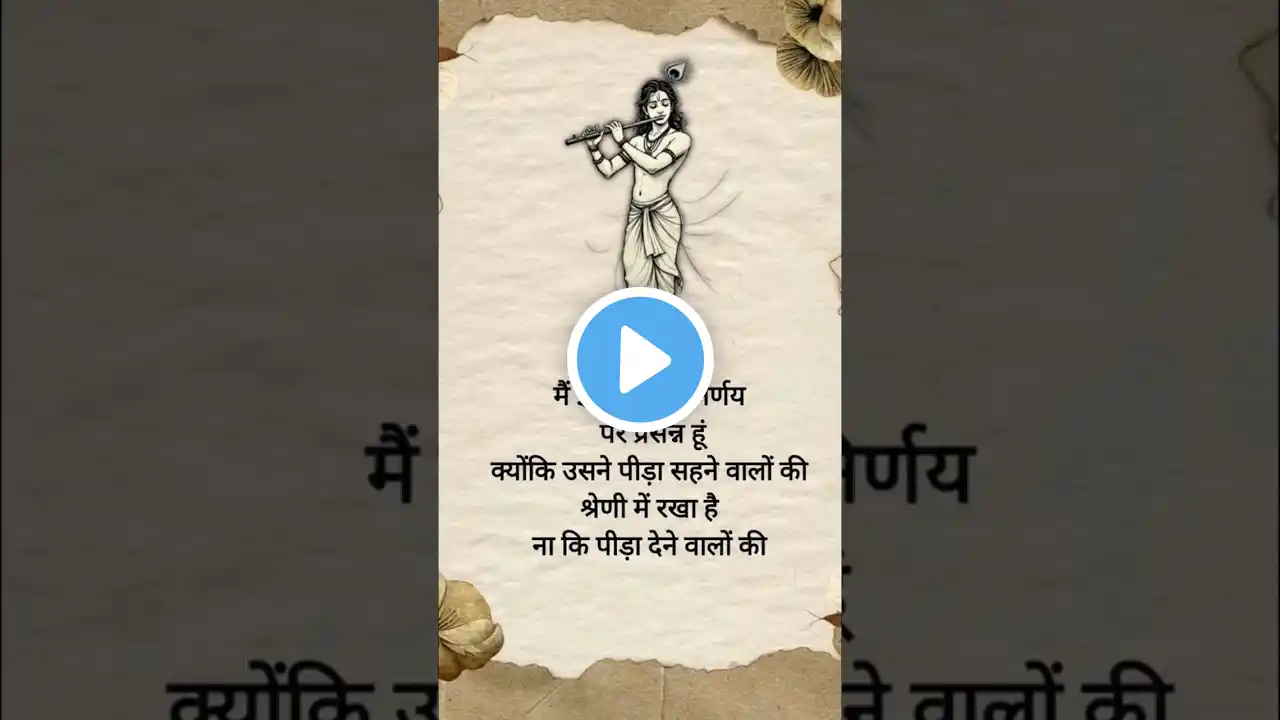 मैं
पर प्रसन्न हूं
क्योंकि उसने पीड़ा सहने वालों की
श्रेणी में रखा है
ना कि पीड़ा देने वालों की